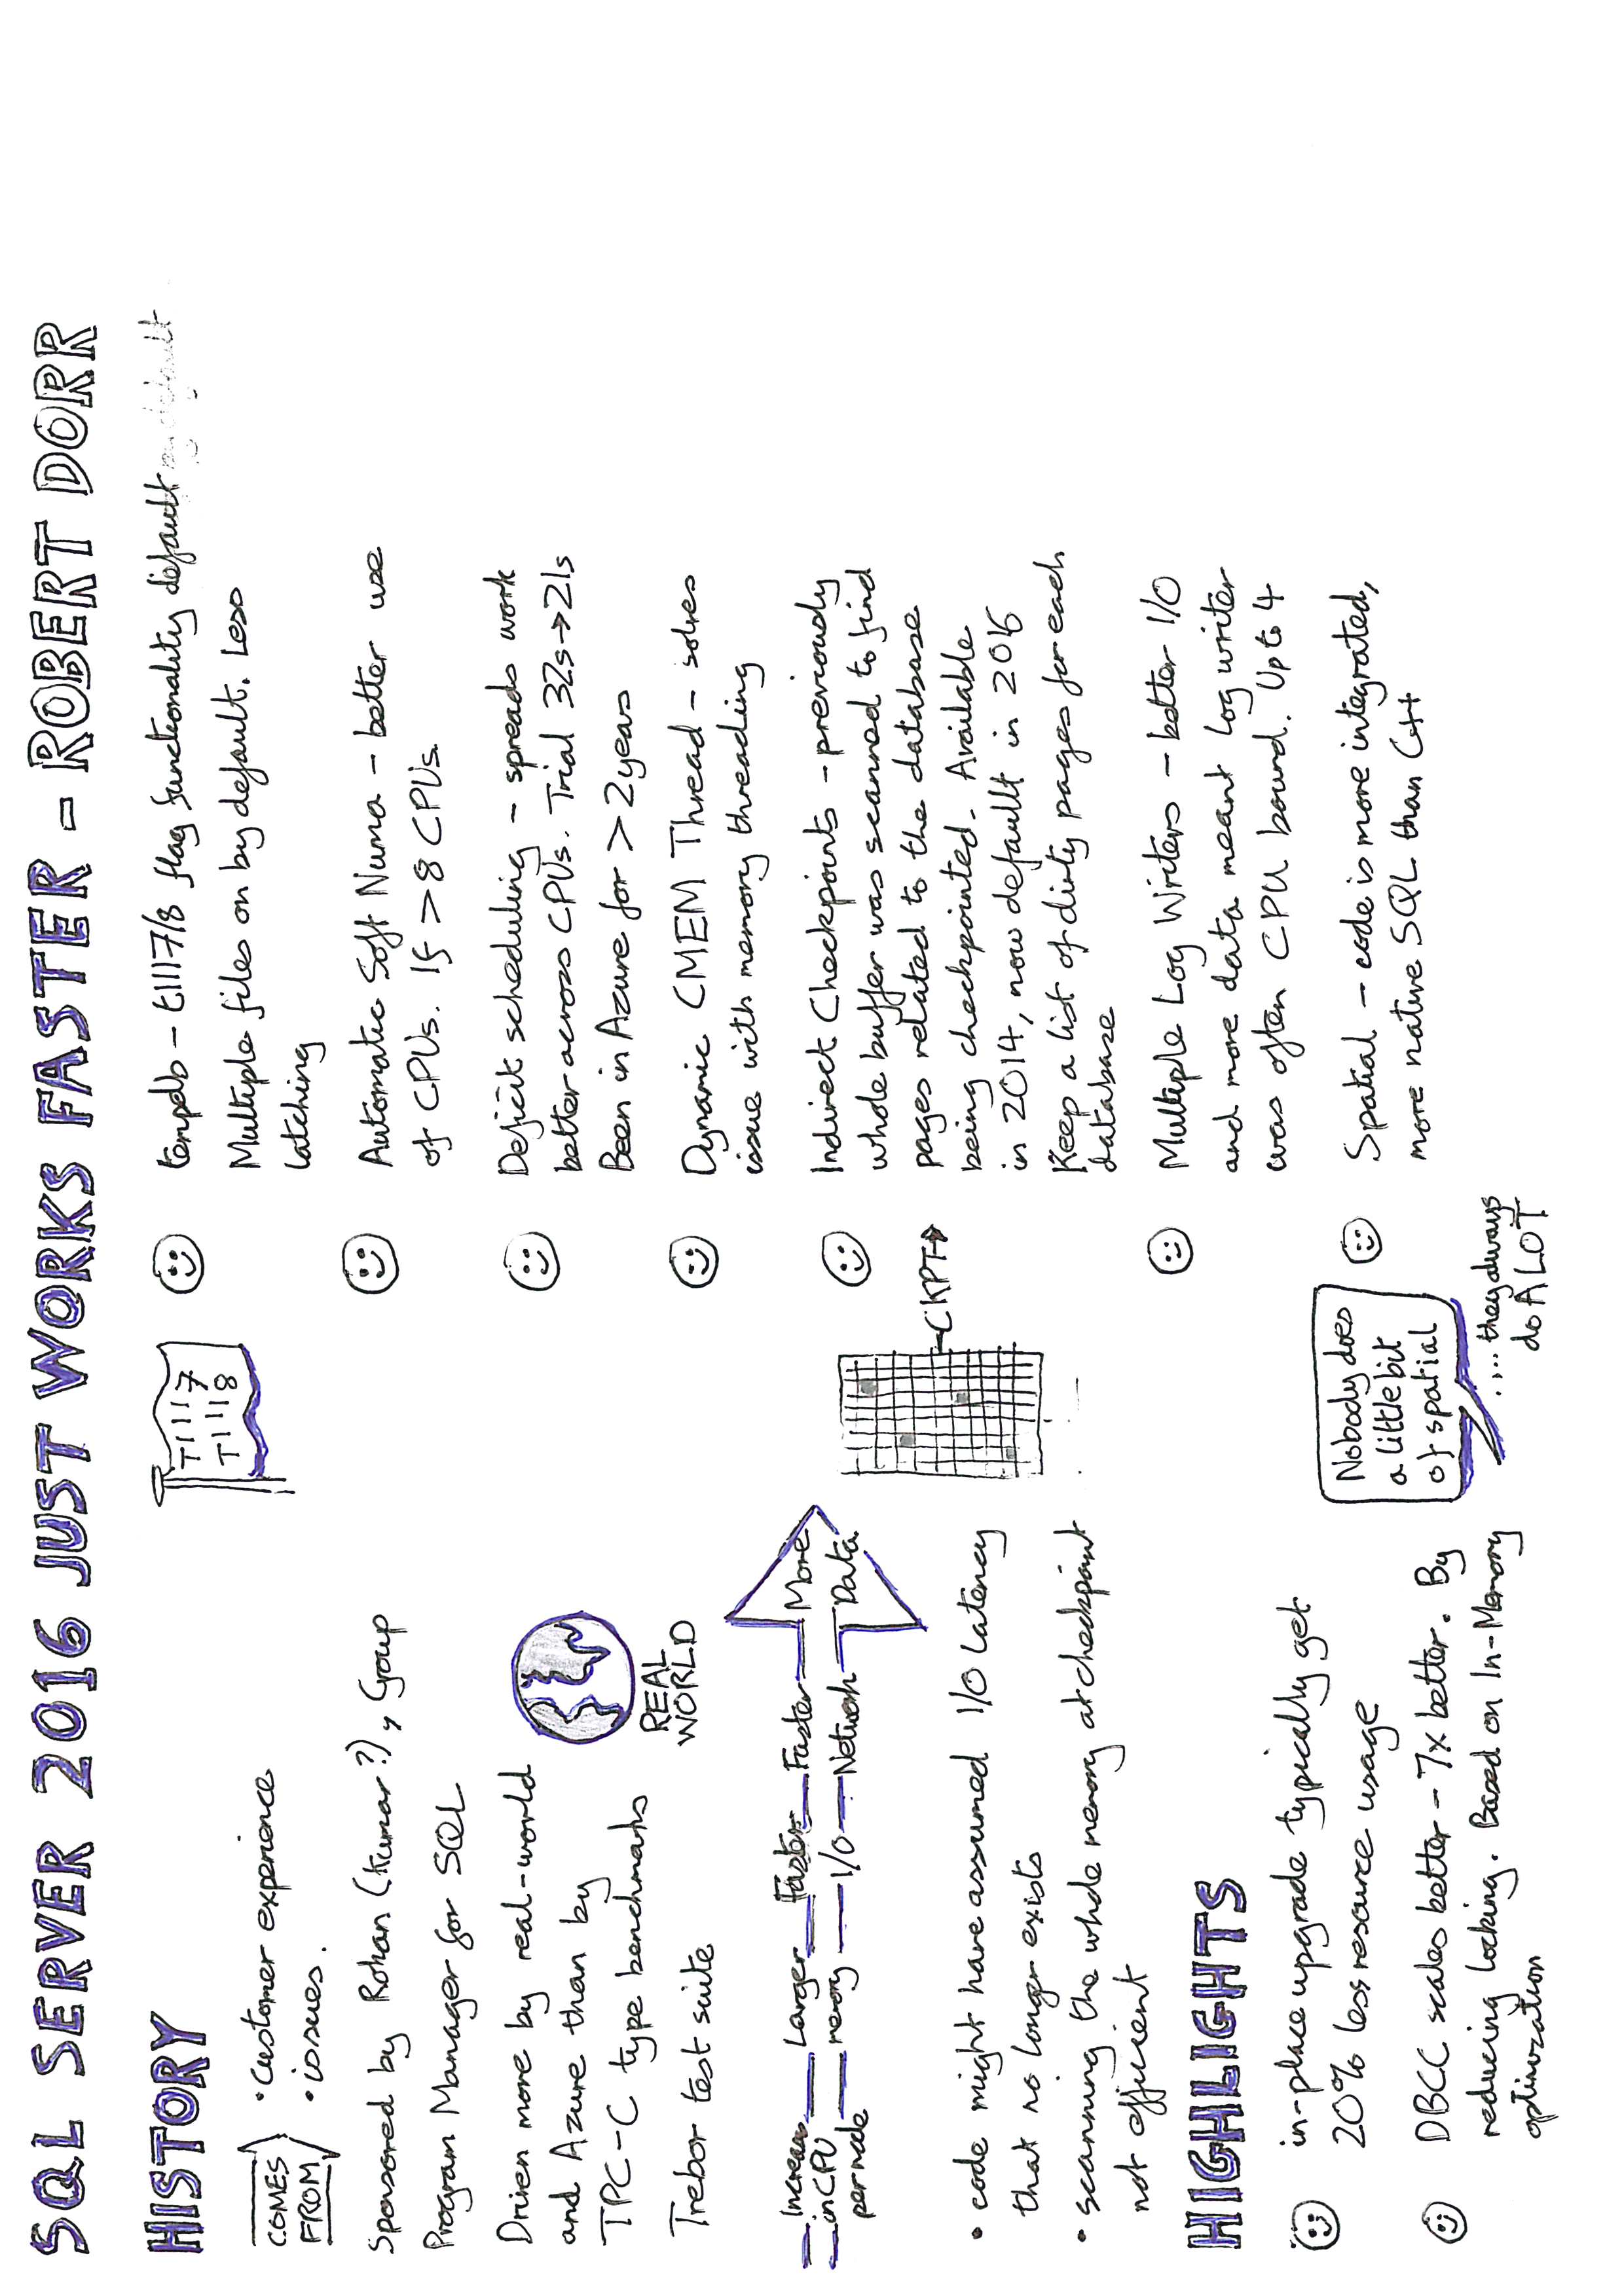 SQL SERVER 2016 JUST WORKS FASTER - ROBERT DORR
HISTORY
COMES
FROM
• customer experience
• issues.
Sponsored by Rohan (Kumar?), Group
Program Manager for SQL
Driven more by real-world
and Azure than by
TPC-C type benchmarks
REAL
WORLD
Trebor test suite
Increase
in CPU
per node
Larger
memory
Faster
I/O
Faster
Network
More
Data
• code might have assumed I/O latency
that no longer exists
• scanning the whole memory at checkpoint
not efficient
HIGHLIGHTS
in-place upgrade typically get
20% less resource usage
DBCC scales better - 7x better. By
reducing locking. Based on In-Memory
optimization
T1117
T1118
tempdb - t1117/8 flag functionality default
Multiple files on by default. Less
latching
Automatic Soft Numa - better use
of CPUs. If > 8 CPUs.
Deficit scheduling - spreads work
better across CPUs. Trial 32s→21s
Been in Azure for > 2years
Dynamic CMEM Thread - solves
issue with memory threading
CKPT
Indirect Checkpoints - previously
whole buffer was scanned to find
pages related to the database
being checkpointed. Available
in 2014, now default in 2016
Keep a list of dirty pages for each
database
Multiple Log Writers - better I/O
and more data meant log writer
was often CPU bound. Up to 4
Nobody does
a little bit
of spatial
....they always
do A LOT
Spatial - code is more integrated,
more native SQL than C++